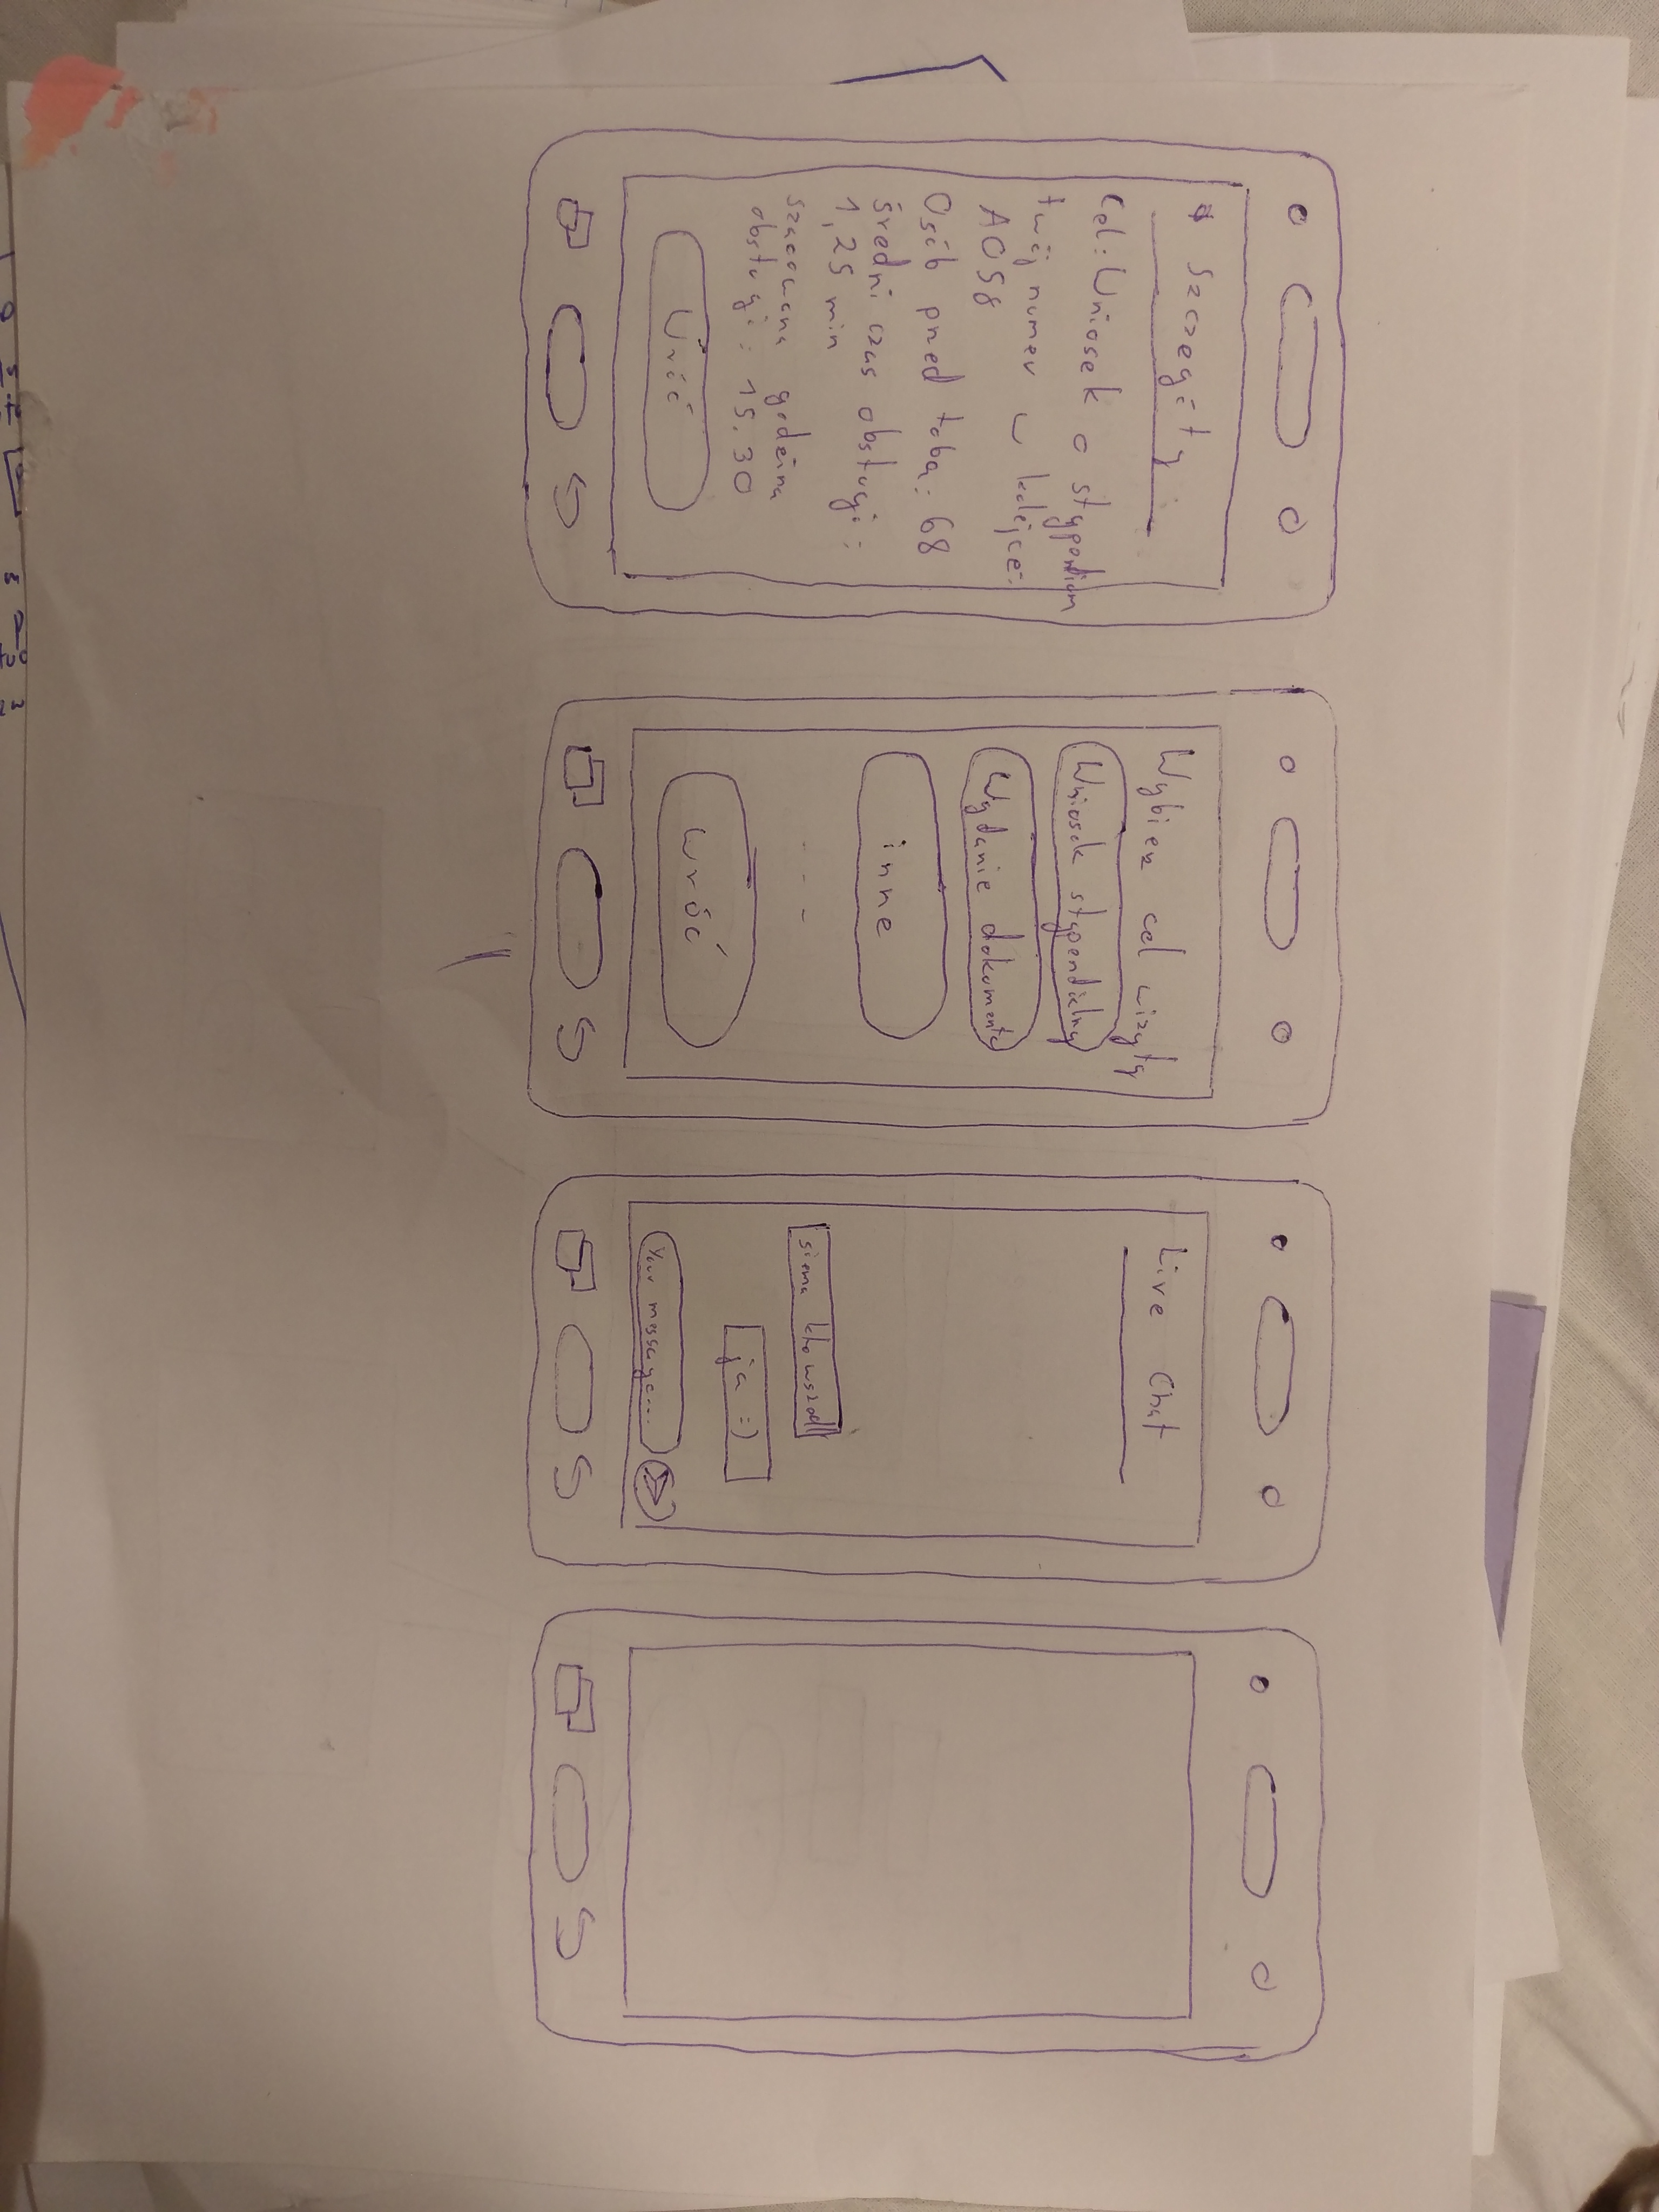 Szczegóły
Cel: Wniosek o stypendium
twój numer w kolejce:
A058
Osób przed tobą: 68
średni czas obsługi:
1,25 min
szacowana godzina
obsługi: 15:30
Wróć
Wybierz cel wizyty
Wniosek stypendialny
Wydanie dokumentu
inne
...
wróć
Live Chat
siema kto wszedł
ja :)
Your message...